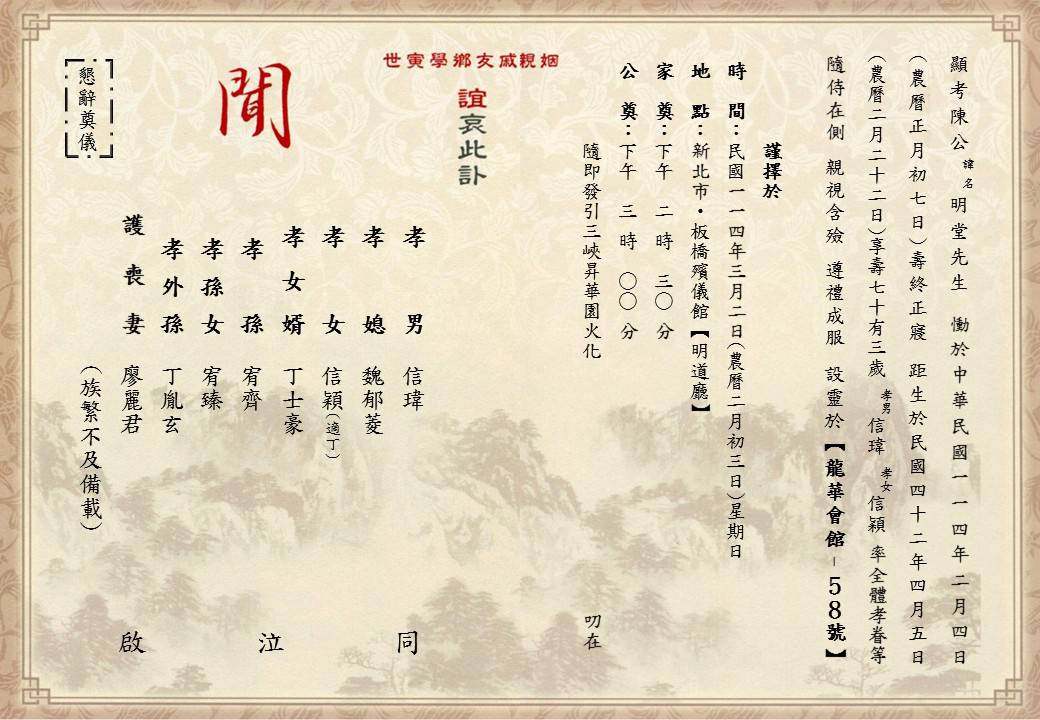 顯考陳公諱名明堂先生 慟於中華民國一一四年二月四日
(農曆正月初七日)壽終正寢 距生於民國四十二年四月五日
(農曆二月二十二日)享壽七十有三歲 孝男信瑋 孝女信穎 率全體孝眷等
隨侍在側 親視含殮 遵禮成服 設靈於【龍華會館-58號】
謹擇於
時間:民國一一四年三月二日(農曆二月初三日)星期日
地點:新北市・板橋殯儀館【明道廳】
家奠:下午 二時 三〇分
公奠:下午 三時 〇〇分
隨即發引三峽昇華園火化
叨在
姻親戚友鄉學寅世
誼哀此訃
聞
孝男 信瑋
孝媳 魏郁菱
孝女 信穎(適丁)
孝女婿 丁士豪
孝孫 宥齊
孝孫女 宥臻
孝外孫 丁胤玄
護喪妻 廖麗君
(族繁不及備載)
同泣啟
懇辭奠儀